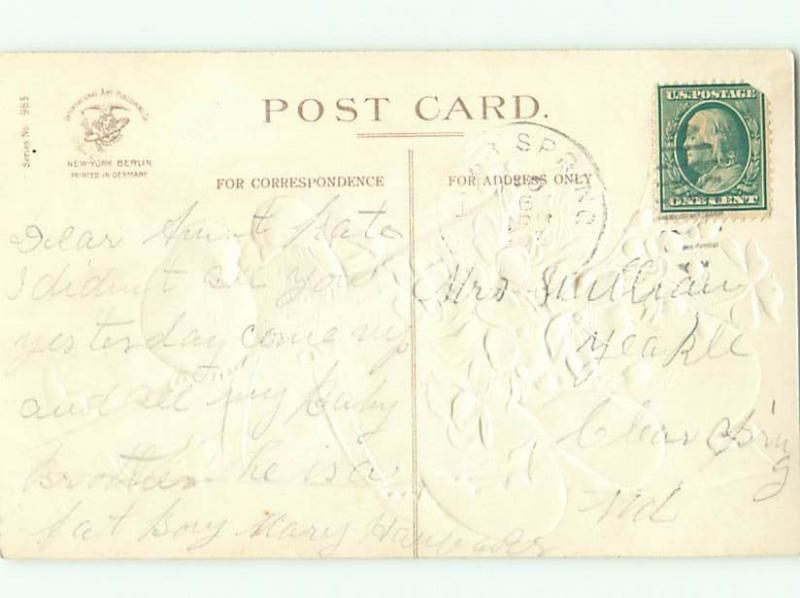 Series No. 985
INTERNATIONAL ART PUBLISHING Co.
NEW-YORK BERLIN
PRINTED IN GERMANY
POST CARD.
FOR CORRESPONDENCE
FOR ADDRESS ONLY
SPRING
U.S. POSTAGE
ONE CENT
Dear Aunt Kate
I didn't see you
yesterday come up
and see my baby
Brother he is a
fat Boy Mary
Mrs William
Yeakle
Clear Spring
Md